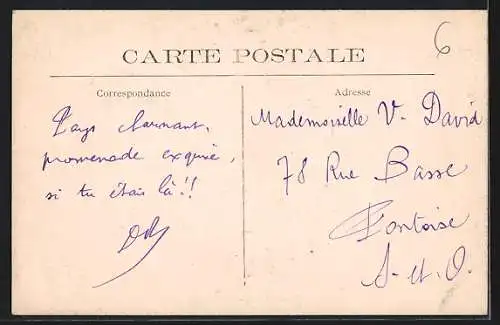 6
CARTE POSTALE
Correspondance
Pays charmant,
promenade exquise,
si tu étais là!!
Adresse
Mademoiselle V. David
78 Rue Basse
Pontoise
S-et-O.